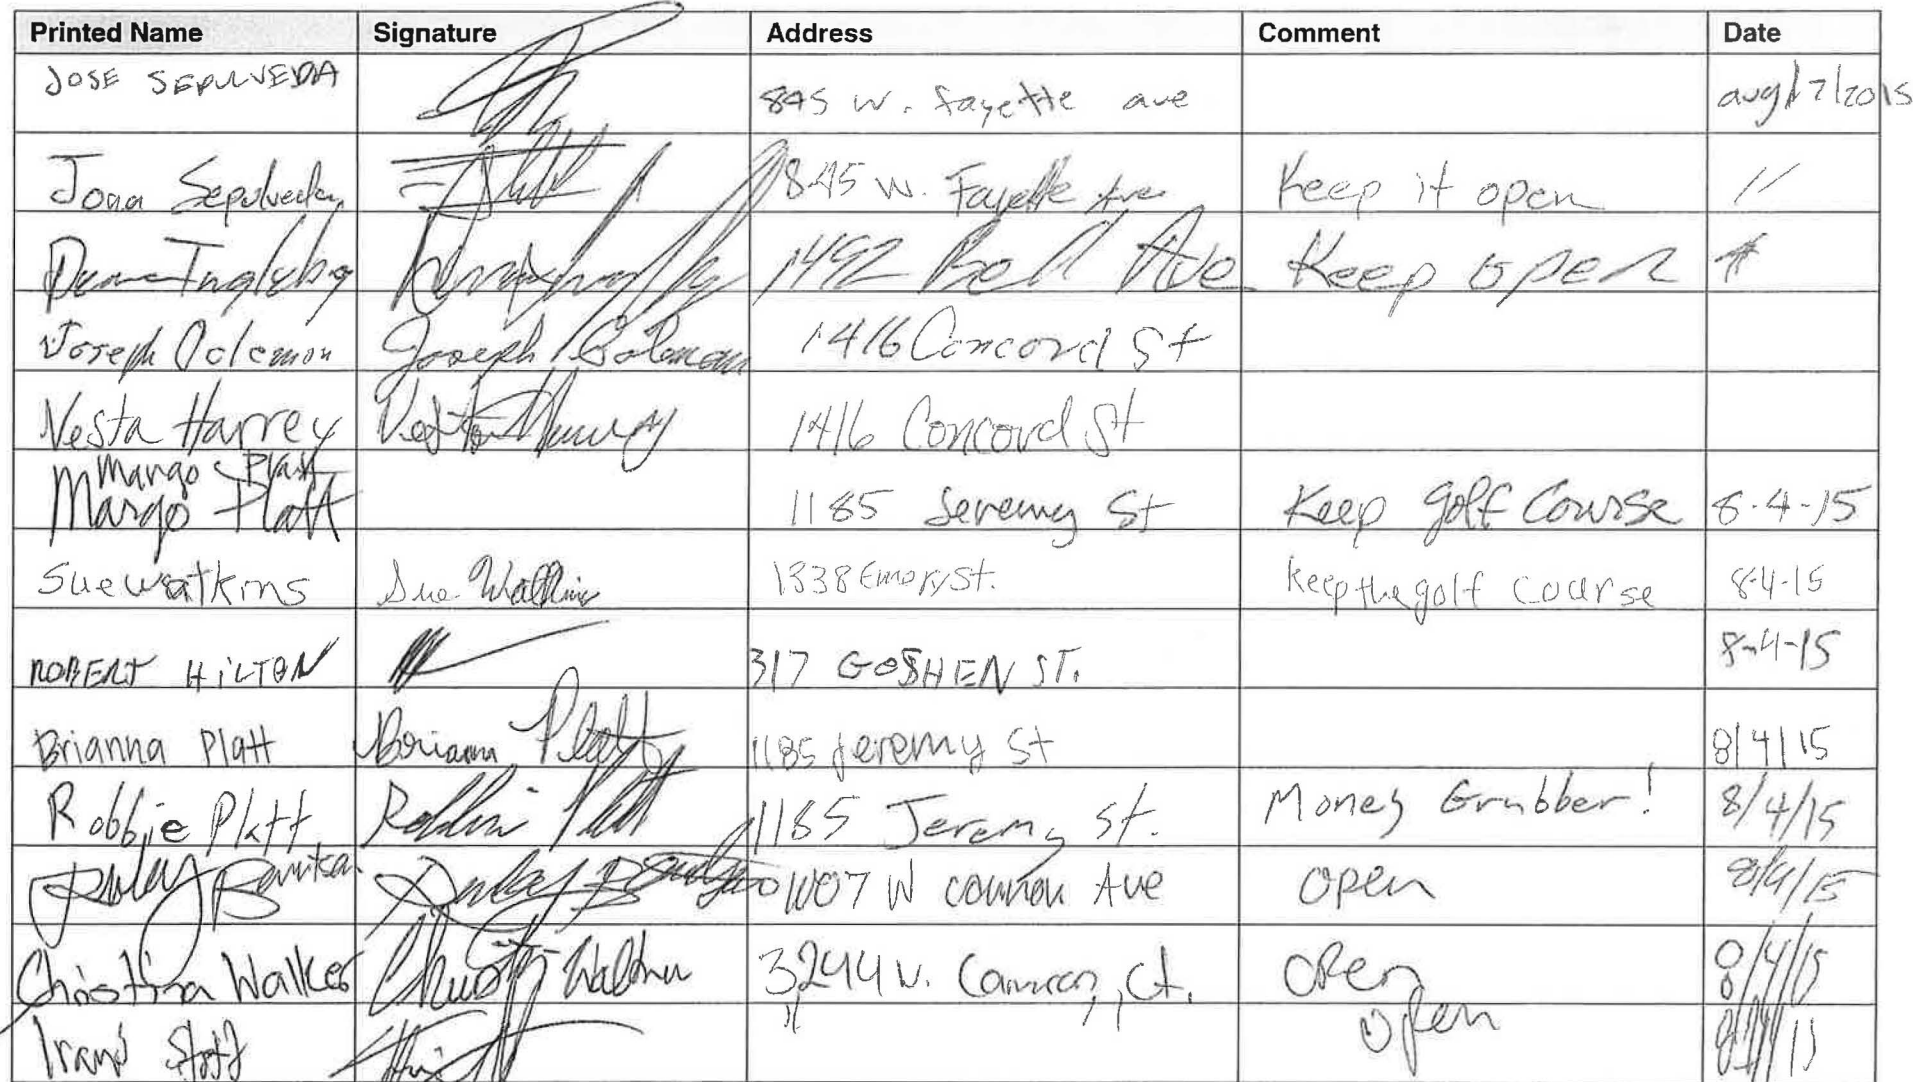 Printed Name Signature Address Comment Date
JOSE SEPULVEDA 845 W. fayette ave aug/17/2015
Jona Sepulveda 845 W. Fayette Ave Keep it open //
Ingleby 1492 Bell Ave Keep open
Joseph Coleman Joseph Coleman 1416 Concord St
Vesta Harvey Vesta Harvey 1416 Concord St
Margo Platt
Margo Platt 1185 Jeremy St Keep golf Course 8-4-15
Sue watkins Sue Watkins 1338 Emory St. keep the golf course 8-4-15
ROBERT HILTON 317 GOSHEN ST. 8-4-15
Brianna Platt Brianna Platt 1185 jeremy St 8/4/15
Robbie Platt Robbie Platt 1185 Jeremy St. Money Grubber! 8/4/15
1007 W Ave open 8/4/15
Christina Walker Walker 3244 W. Ct. open 8/4/15
open